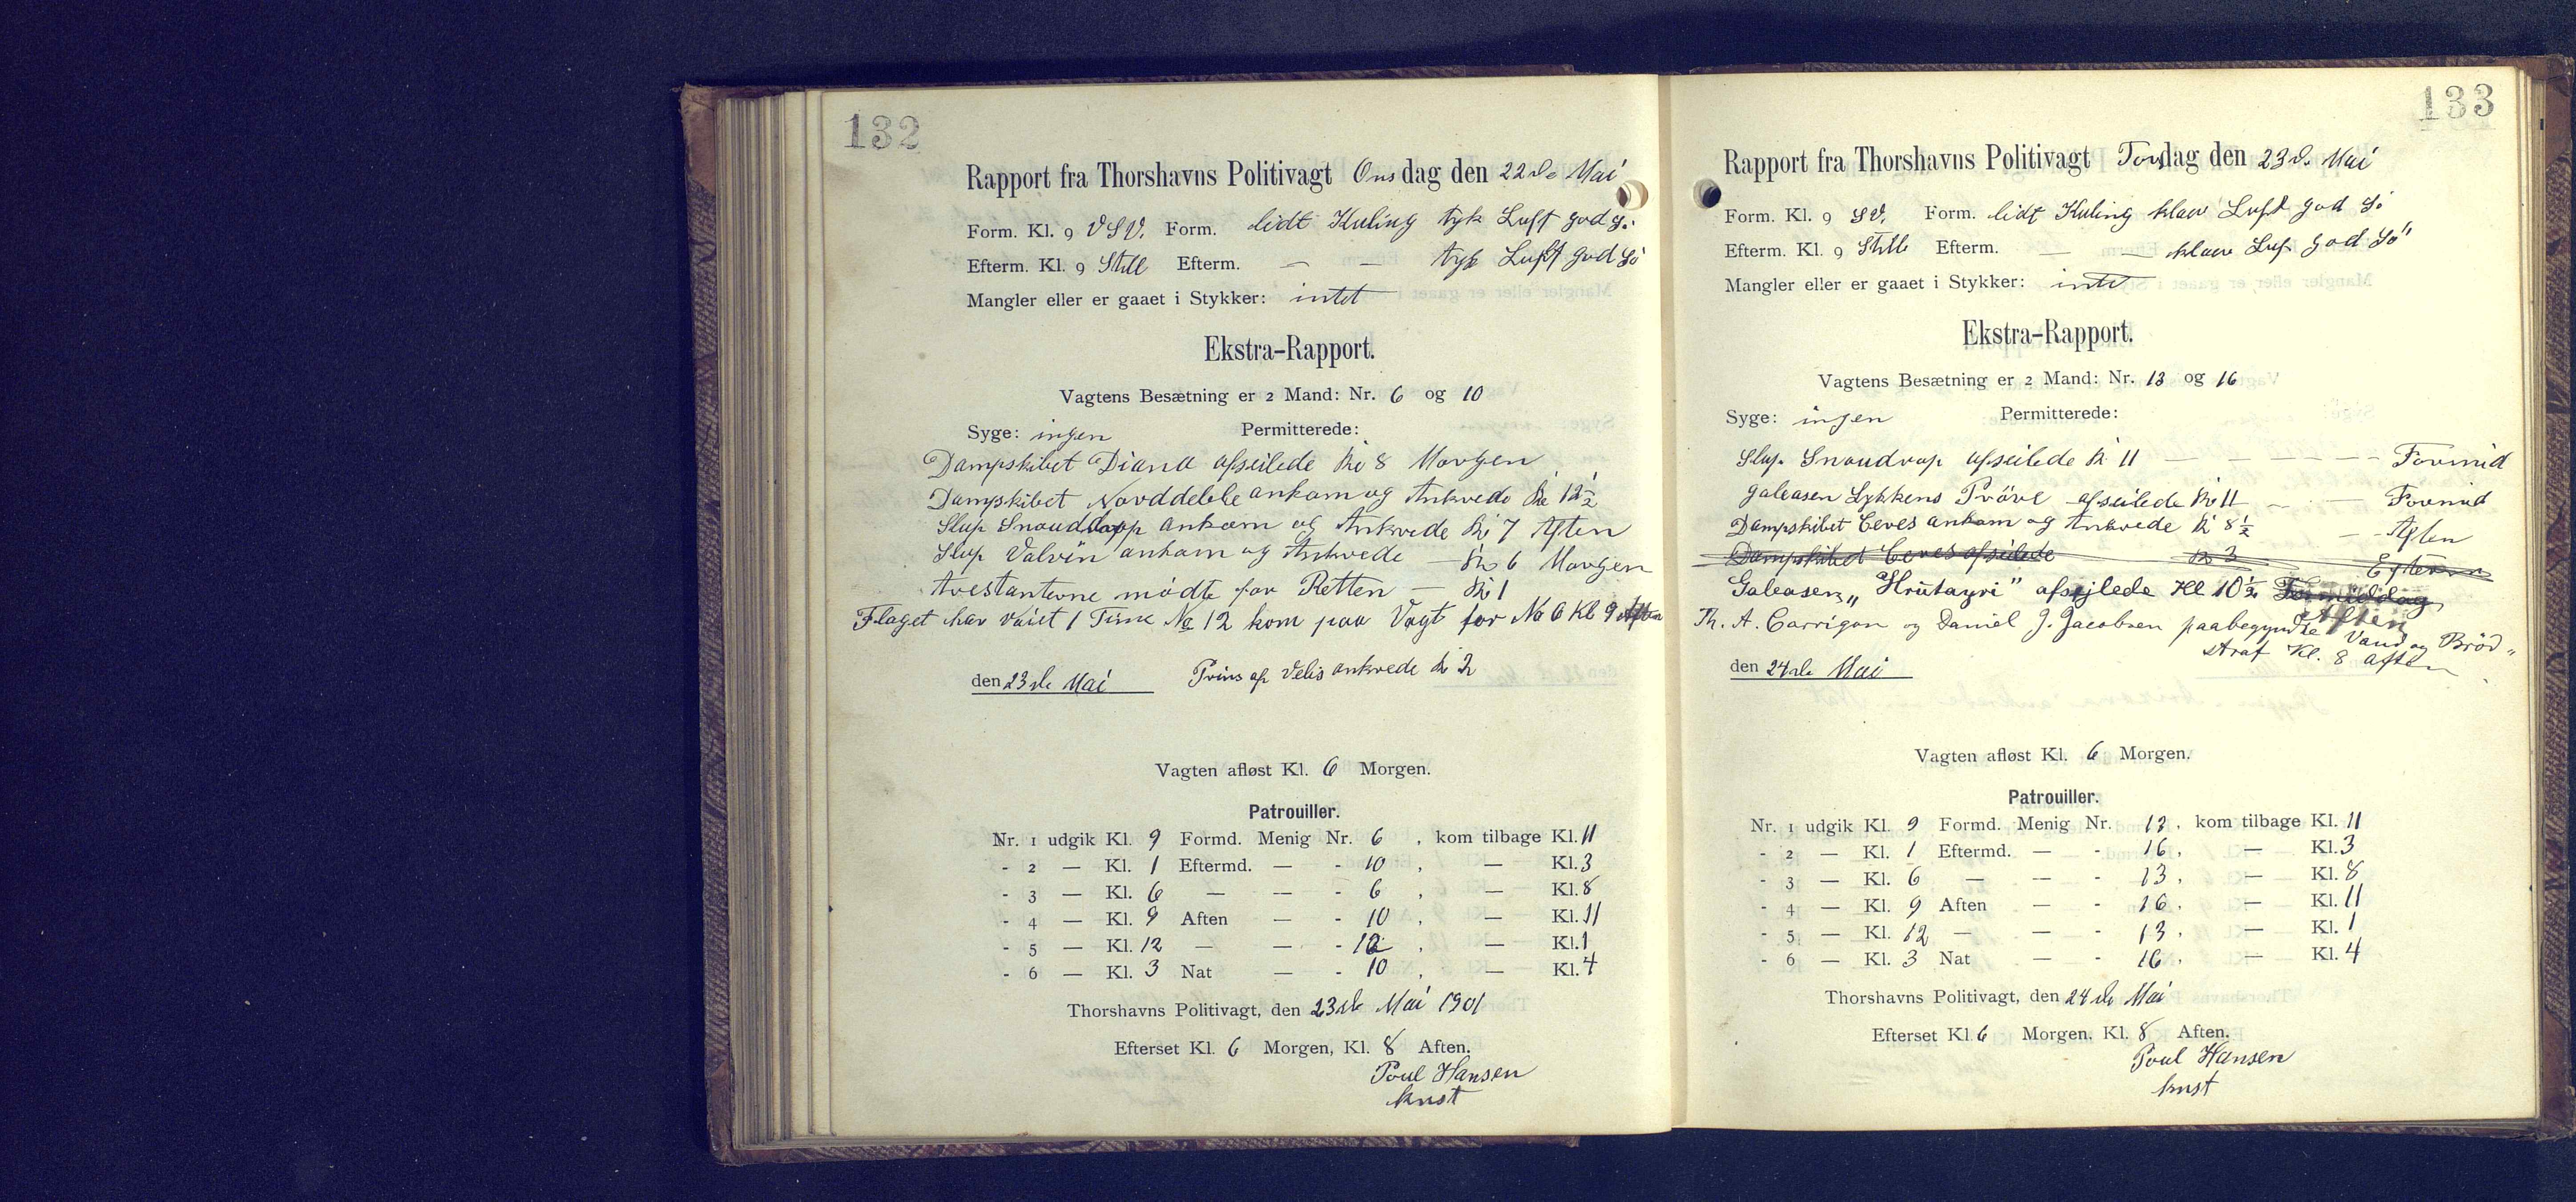 132
Rapport fra Thorshavns Politivagt Onsdag den 22de Mai
Form. Kl. 9 VSV. Form. lidt Kuling tyk Luft god Sö
Efterm. Kl. 9 Still Efterm. — — tyk Luft god Sö
Mangler eller er gaaet i Stykker: intet
Ekstra-Rapport.
Vagtens Besætning er 2 Mand: Nr. 6 og 10
Syge: ingen Permitterede:
Dampskibet Diana afseilede Kl 8 Morgen
Dampskibet Norddeble ankom og Ankrede Kl 12½
Slup Snouddropp ankom og Ankrede Kl 7 Aften
Slup Valvin ankom og Ankrede — Kl 6 Morgen
Arestanterne mödte for Retten — Kl 1
Flaget har vaiet 1 Time No 12 kom paa Vagt for No 6 Kl 9 Aften
den 23de Mai Prins af Velis ankrede Kl 2
Vagten afløst Kl. 6 Morgen.
Patrouiller.
Nr. 1 udgik Kl. 9 Formd. Menig Nr. 6 , kom tilbage Kl. 11
- 2 — Kl. 1 Eftermd. — - 10 , — Kl. 3
- 3 — Kl. 6 — — - 6 , — Kl. 8
- 4 — Kl. 9 Aften — - 10 , — Kl. 11
- 5 — Kl. 12 — — - 12 , — Kl. 1
- 6 — Kl. 3 Nat — - 10 , — Kl. 4
Thorshavns Politivagt, den 23de Mai 1901
Efterset Kl. 6 Morgen, Kl. 8 Aften.
Poul Hansen
knst
133
Rapport fra Thorshavns Politivagt Torsdag den 23de Mai
Form. Kl. 9 SV. Form. lidt Kuling klar Luft god Sö
Efterm. Kl. 9 Still Efterm. — — klar Luf god Sö
Mangler eller er gaaet i Stykker: intet
Ekstra-Rapport.
Vagtens Besætning er 2 Mand: Nr. 13 og 16
Syge: ingen Permitterede:
Slup. Snoudrop afseilede Kl 11 — — — — — Formid
galeasen Lykkens Pröve afseilede Kl 11 — — Formid
Dampskibet Ceres ankom og Ankrede Kl 8½ — - Aften
Dampskibet Ceres afseilede Kl 3 Efterm
Galeasen „Hrutayri" afsejlede Kl 10½ Formiddag
Aften
Th. A. Carrigan og Daniel J. Jacobsen paabegyndte Vand og Bröd„
straf Kl. 8 Aften
den 24de Mai
Vagten afløst Kl. 6 Morgen.
Patrouiller.
Nr. 1 udgik Kl. 9 Formd. Menig Nr. 13 , kom tilbage Kl. 11
- 2 — Kl. 1 Eftermd. — - 16 , — Kl. 3
- 3 — Kl. 6 — — - 13 , — Kl. 8
- 4 — Kl. 9 Aften — - 16 , — Kl. 11
- 5 — Kl. 12 — — - 13 , — Kl. 1
- 6 — Kl. 3 Nat — - 16 , — Kl. 4
Thorshavns Politivagt, den 24de Mai
Efterset Kl. 6 Morgen, Kl. 8 Aften.
Poul Hansen
knst